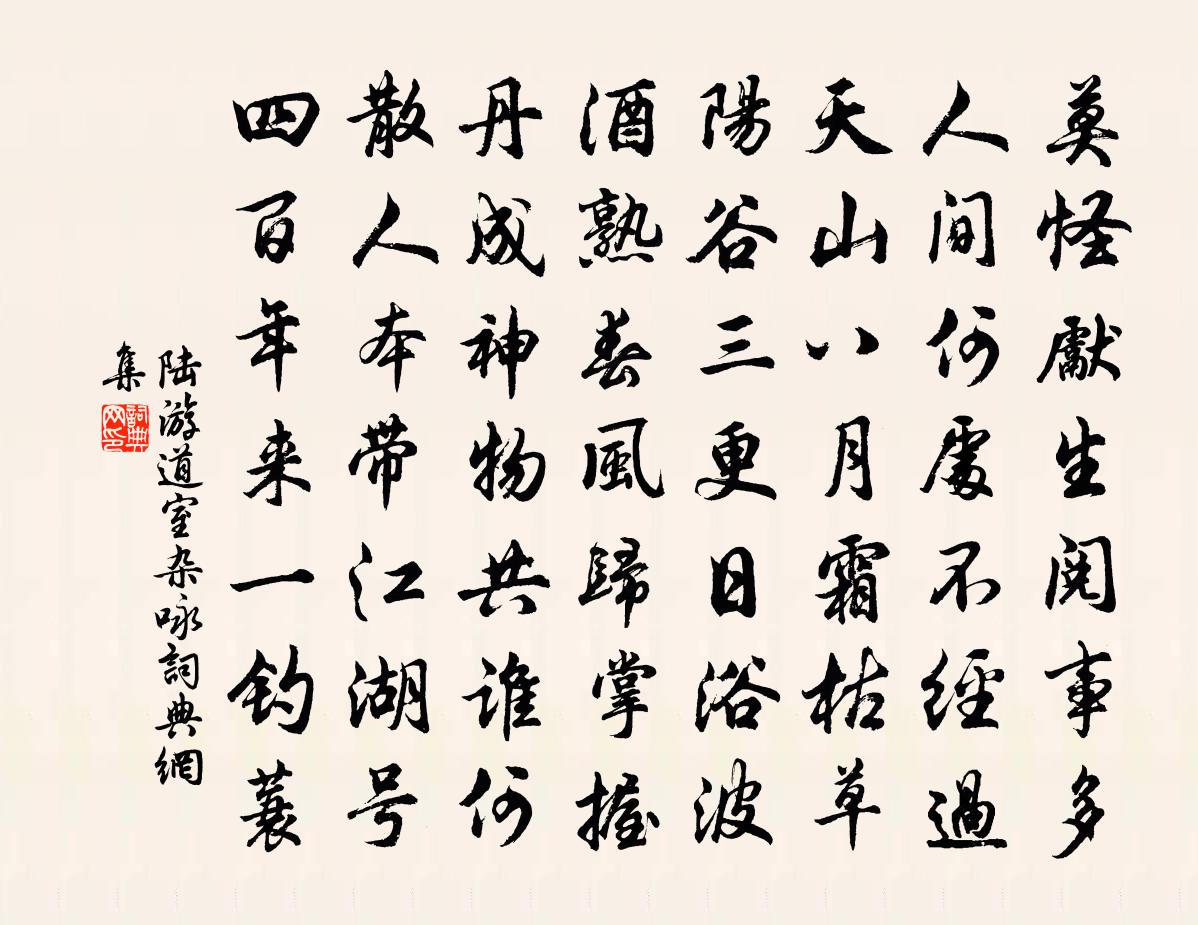 莫怪獻生閱事多
人間何處不經過
天山八月霜枯草
陽谷三更日浴波
酒熟春風歸掌握
丹成神物共誰何
散人本带江湖号
四百年来一钓蓑
陆游道室杂咏詞典網
集
詞典网印